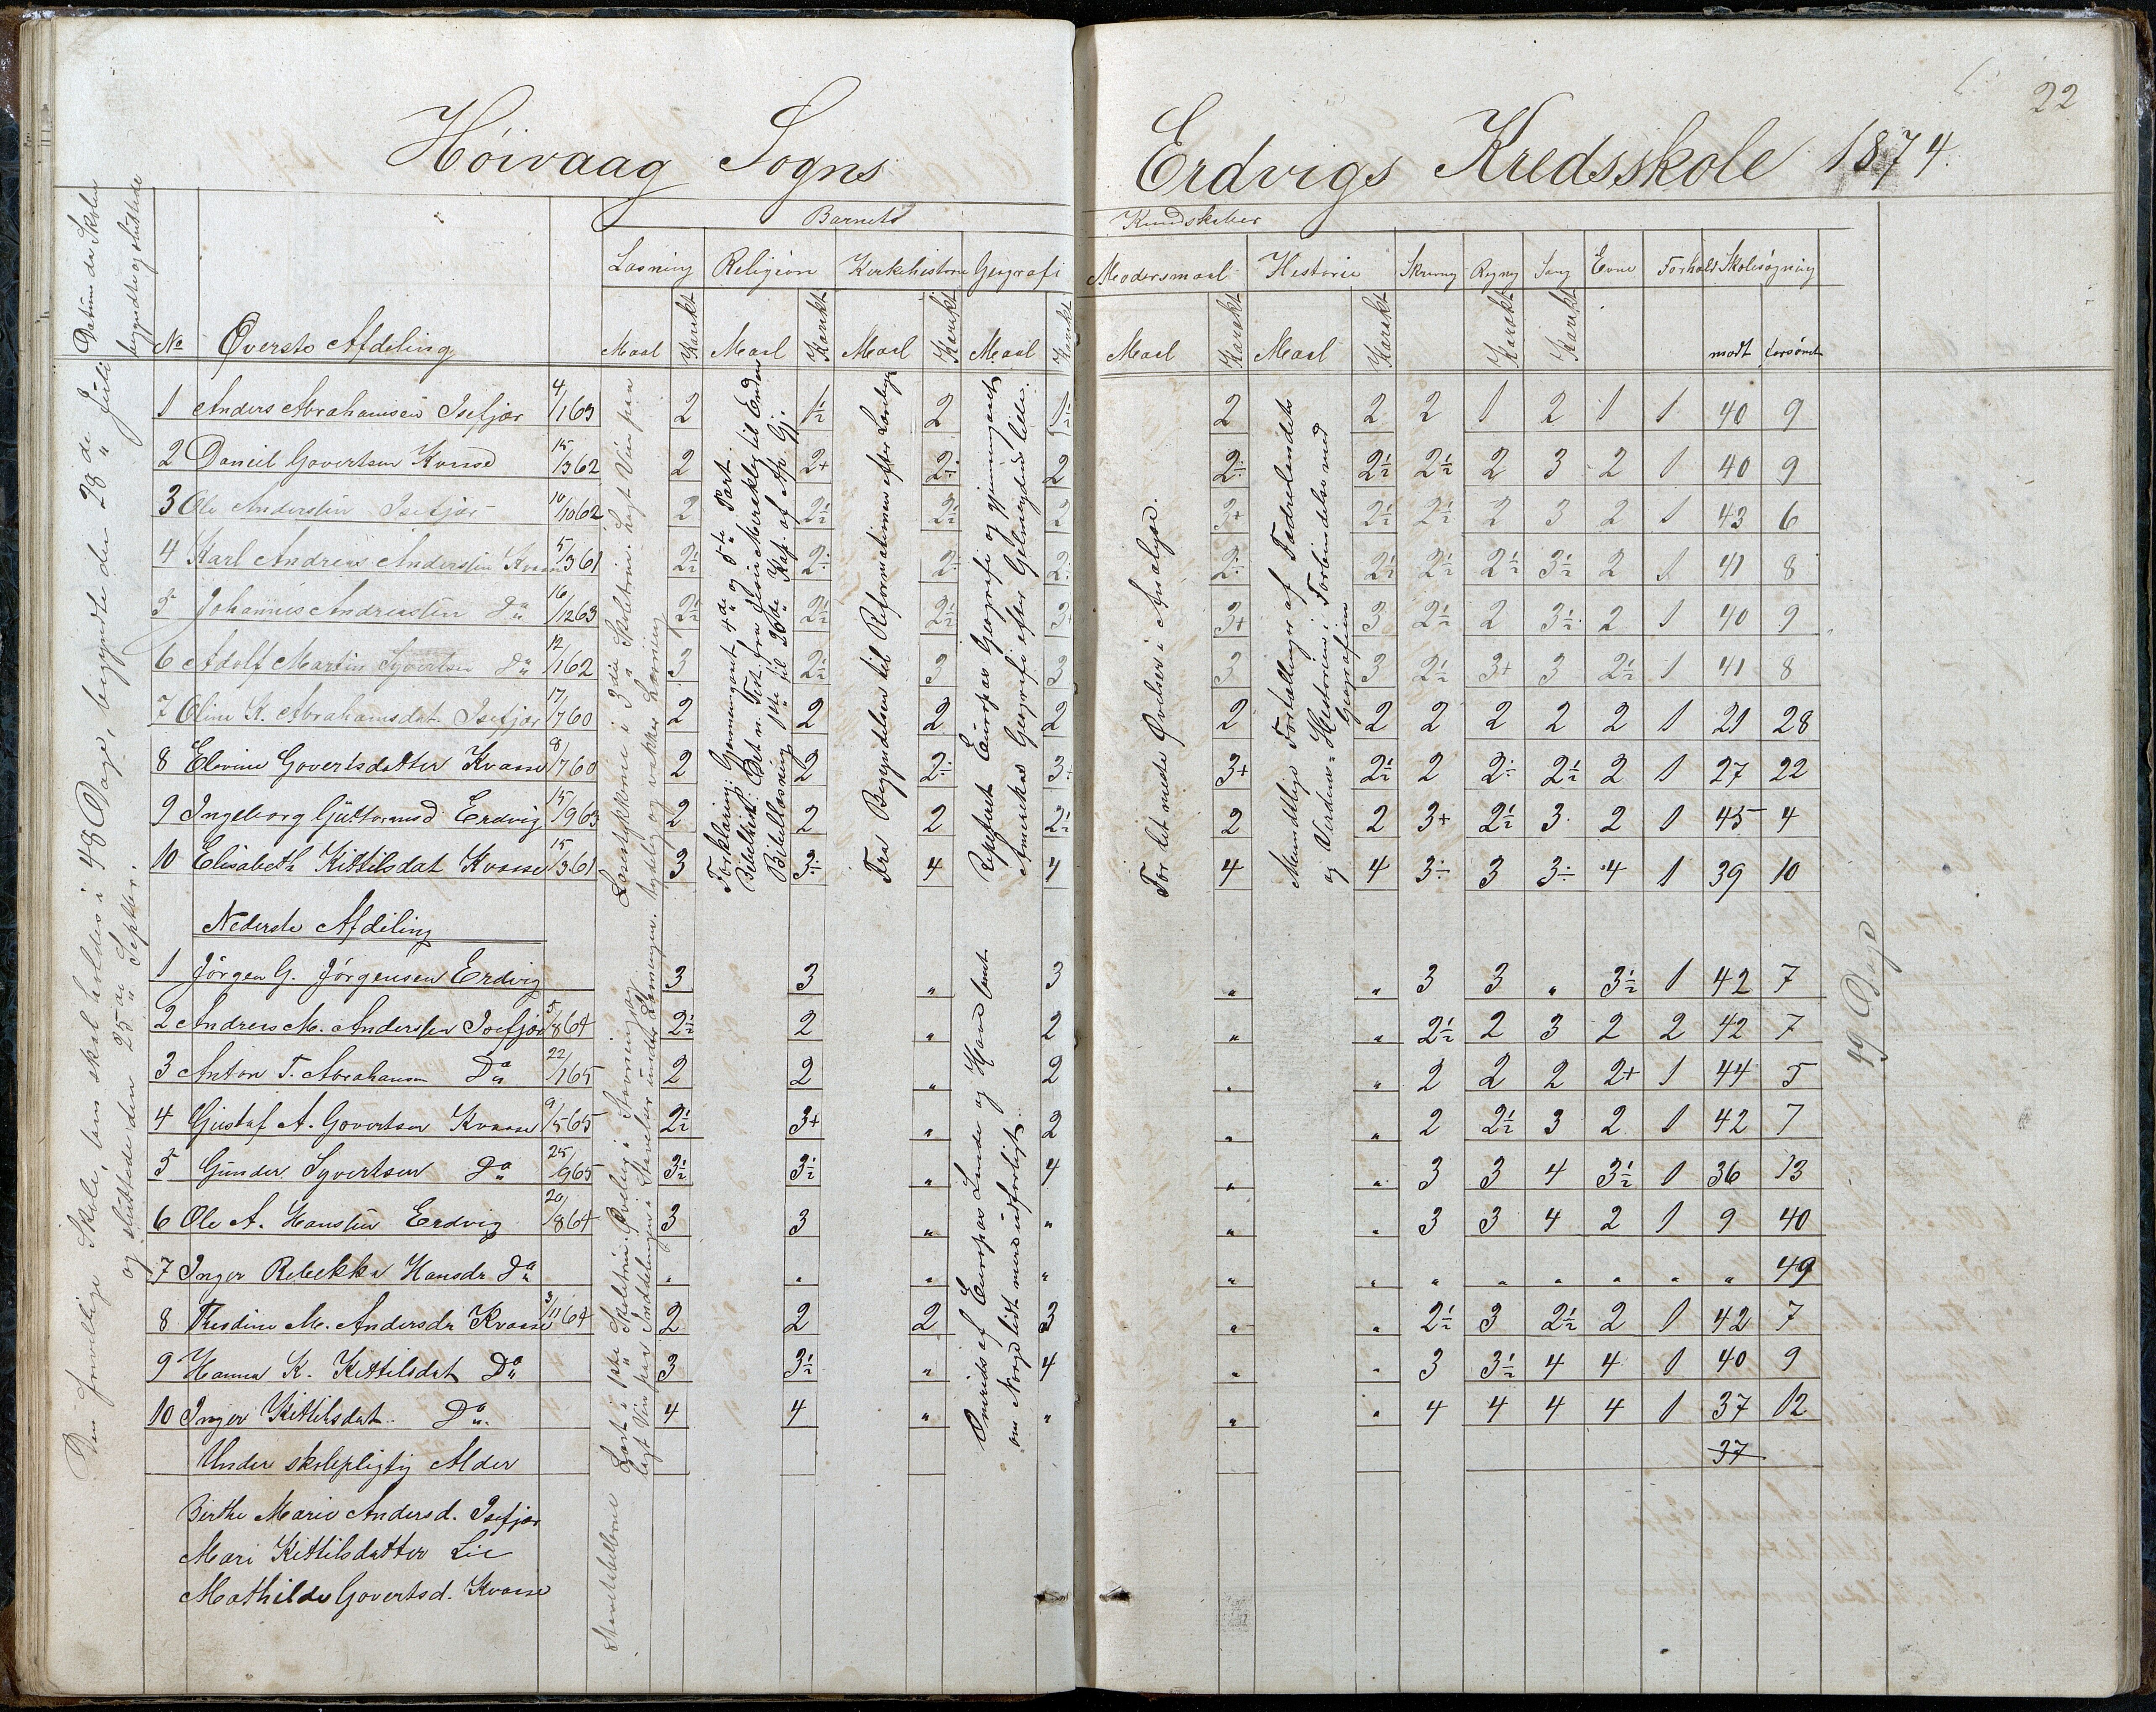 22
Høivaag Sogns Erdvigs Kredsskole 1874.
Datum da Skolen begyndte og sluttede
Barnets Kundskaber
Læsning Religion Kirkehistorie Geografi Modersmaal Historie Skrivning Regning Sang Evne Forhold Skolesøgning
No Øverste Afdeling Maal Karakt Maal Karakt Maal Karakt Maal Karakt Maal Karakt Maal Karakt Karakt Karakt mødt forsømt
1 Anders Abrahamsen Isefjær 4/1 63 2 1½ 2 1½ 2 2 2 1 2 1 1 40 9
2 Daniel Govertsen Kvaase 15/3 62 2 2+ 2÷ 2 2÷ 2½ 2½ 2 3 2 1 40 9
3 Ole Andersen Isefjær 10/10 62 2 2½ 2½ 2 3+ 2½ 2½ 2 3 2 1 43 6
4 Karl Andreas Andersen Kvaase 5/3 61 2½ 2÷ 2÷ 2÷ 2÷ 2½ 2½ 2½ 3½ 2 1 41 8
5 Johannes Andreassen Do 16/12 63 2½ 2½ 2½ 3+ 3+ 3 2½ 2 3½ 2 1 40 9
6 Adolf Martin Syvertsen Do 12/1 62 3 2½ 3 3 3 3 2½ 3+ 3 2½ 1 41 8
7 Oline K. Abrahamsdat. Isefjær 17/7 60 2 2 2 2 2 2 2 2 2 2 1 21 28
8 Elevine Govertsdatter Kvaase 8/7 60 2 2 2÷ 3+ 3+ 2½ 2 2÷ 2½ 2 1 27 22
9 Ingeborg Guttormsd Erdvig 15/9 63 2 2 2 2½ 2 2 3+ 2½ 3 2 1 45 4
10 Elisabeth Kittilsdat Kvaase 15/3 61 3 3÷ 4 4 4 4 3÷ 3 3÷ 4 1 39 10
Nederste Afdeling
1 Jörgen G. Jörgensen Erdvig 3 3 " 3 " " 3 3 " 3½ 1 42 7
2 Andreas M. Andersen Isefjær 5/8 64 2½ 2 " 2 " " 2½ 2 3 2 2 42 7
3 Anton T. Abrahamsen Do 22/1 65 2 2 " 2 " " 2 2 2 2+ 1 44 5
4 Gustaf A. Govertsen Kvaase 9/5 65 2½ 3+ " 2 " " 2 2½ 3 2 1 42 7
5 Gunder Syvertsen Do 25/9 65 3½ 3½ " 4 " " 3 3 4 3½ 1 36 13
6 Ole A. Hanssen Erdvig 20/8 64 3 3 " " " " 3 3 4 2 1 9 40
7 Inger Rebekka Hansdr. Do " " " " " " " " " " " " 49
8 Thrsdine M. Andersdr Kvaase 3/11 64 2 2 2 3 " " 2½ 3 2½ 2 1 42 7
9 Hanna K. Kittilsdat Do 3 3½ " 4 " " 3 3½ 4 4 1 40 9
10 Inger Kittilsdat. Do 4 4 " " " " 4 4 4 4 1 37 12
Under skolepligtig Alder 37
Birthe Marie Andersd. Isefjær
Mari Kittilsdatter Lie
Mathilde Govertsd. Kvaase
Den frivillige Skole, som skal holdes i 48 Dage, begyndte den 28de Juli
og sluttede den 25de Septbr.
Læsestykkerne i 3die Skoletrin. Lagt Vin paa
tydelig og vakker Læsning
Forklaring: Gjennemgaaet 4de og 5te Part.
Bibelhist.: Det n. Test. fra Jesu Mirakler til Enden
Bibellæsning 1ste til 20de Kap. af Ap. Gj.
Fra Begyndelsen til Reformationen efter
Repeteret Europas Geografi og gjennemgaaet
Amerikas Geografi efter Geelmuydens lille.
For lit med Øvelser i Analyse.
Mundtlige Fortællinger af Fædrelandets
og Verdens-Historien i Forbindelse med
Geografien
Læst i 1ste Skoletrin. Øvelse i Stavning og
lagt Vin paa Inddelingen i Stavelser under Læsningen.
Omrids af Europas Lande og Have samt
om Norge lidt mere udførligt.
49 Dage